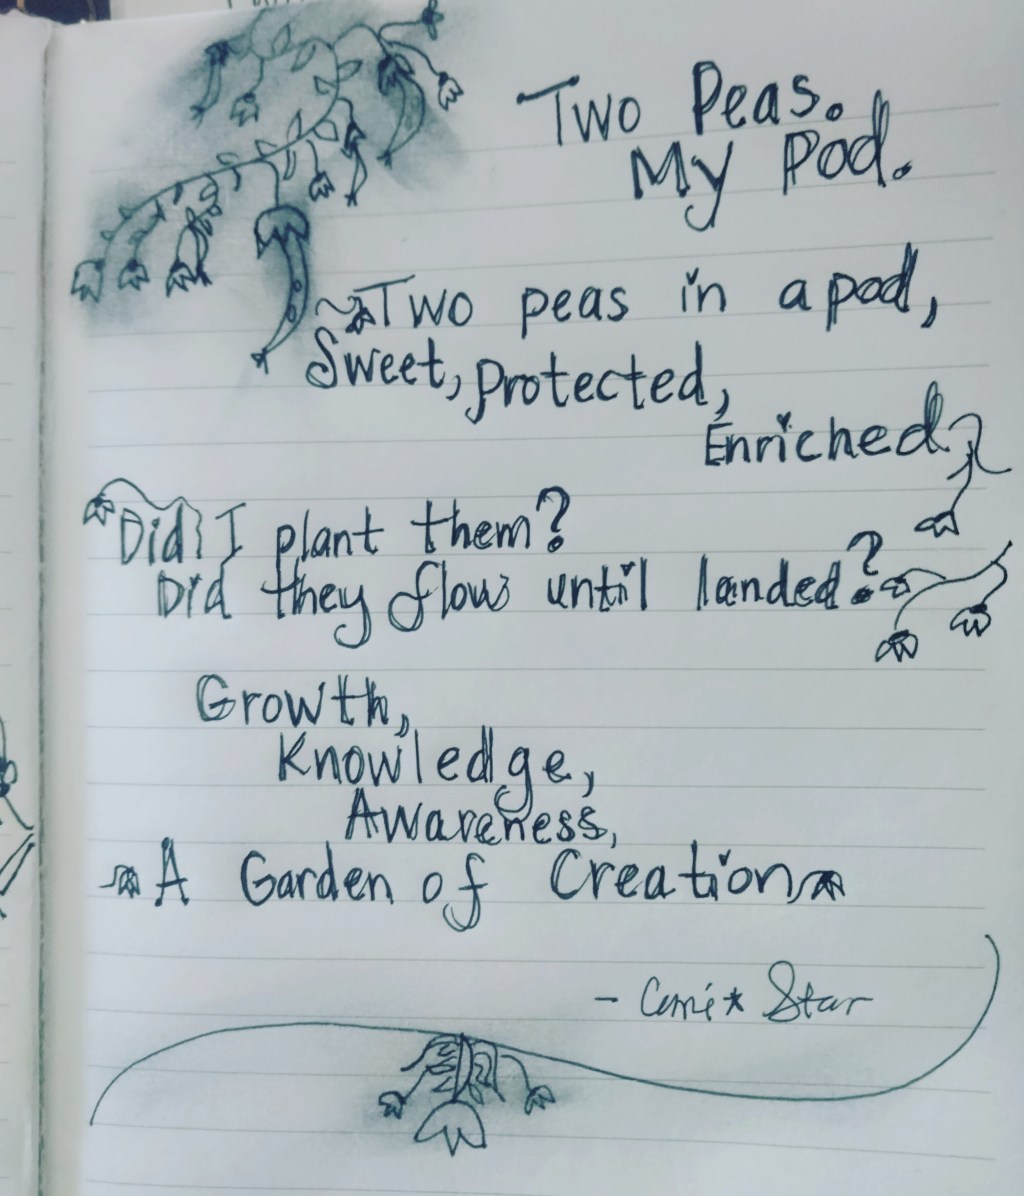 Two Peas.
My Pod.
Two peas in a pod,
Sweet, protected,
Enriched,
Did I plant them?
Did they flow until landed?
Growth,
Knowledge,
Awareness,
A Garden of Creation
Star